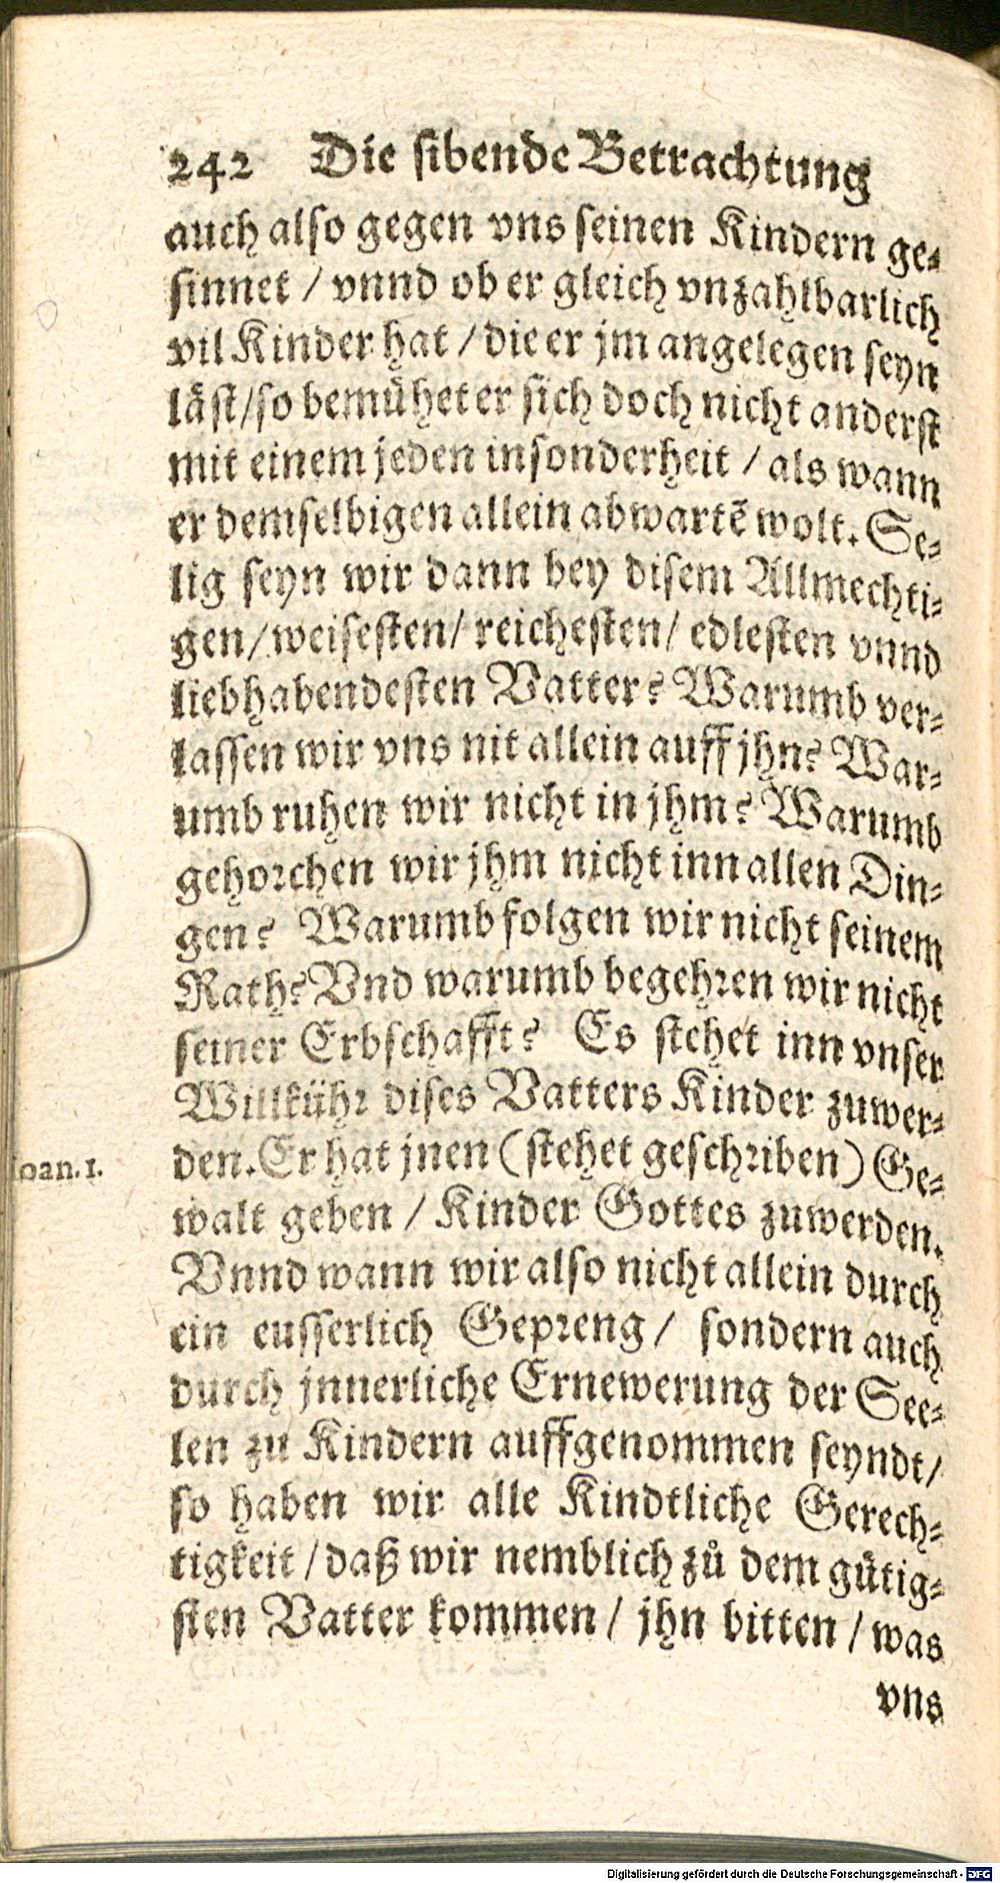 242 Die sibende Betrachtung
auch also gegen vns seinen Kindern ge-
sinnet / vnnd ob er gleich vnzahlbarlich
vil Kinder hat / die er jm angelegen seyn
läst/so bemühet er sich doch nicht anderst
mit einem jeden insonderheit / als wann
er demselbigen allein abwartẽ wolt. Se-
lig seyn wir dann bey disem Allmechti-
gen/ weisesten/ reichesten/ edlesten vnnd
liebhabendesten Vatter? Warumb ver-
lassen wir vns nit allein auff jhn? War-
umb ruhen wir nicht in jhm? Warumb
gehorchen wir jhm nicht inn allen Din-
gen? Warumb folgen wir nicht seinem
Rath? Vnd warumb begehren wir nicht
seiner Erbschafft? Es stehet inn vnser
Willkühr dises Vatters Kinder zuwer-
Joan. 1.
den. Er hat jnen (stehet geschriben) Ge-
walt geben / Kinder Gottes zuwerden.
Vnnd wann wir also nicht allein durch
ein eusserlich Gepreng/ sondern auch
durch jnnerliche Ernewerung der See-
len zu Kindern auffgenommen seyndt/
so haben wir alle Kindtliche Gerech-
tigkeit / daß wir nemblich zů dem gütig-
sten Vatter kommen / jhn bitten / was
vns
Digitalisierung gefördert durch die Deutsche Forschungsgemeinschaft - DFG